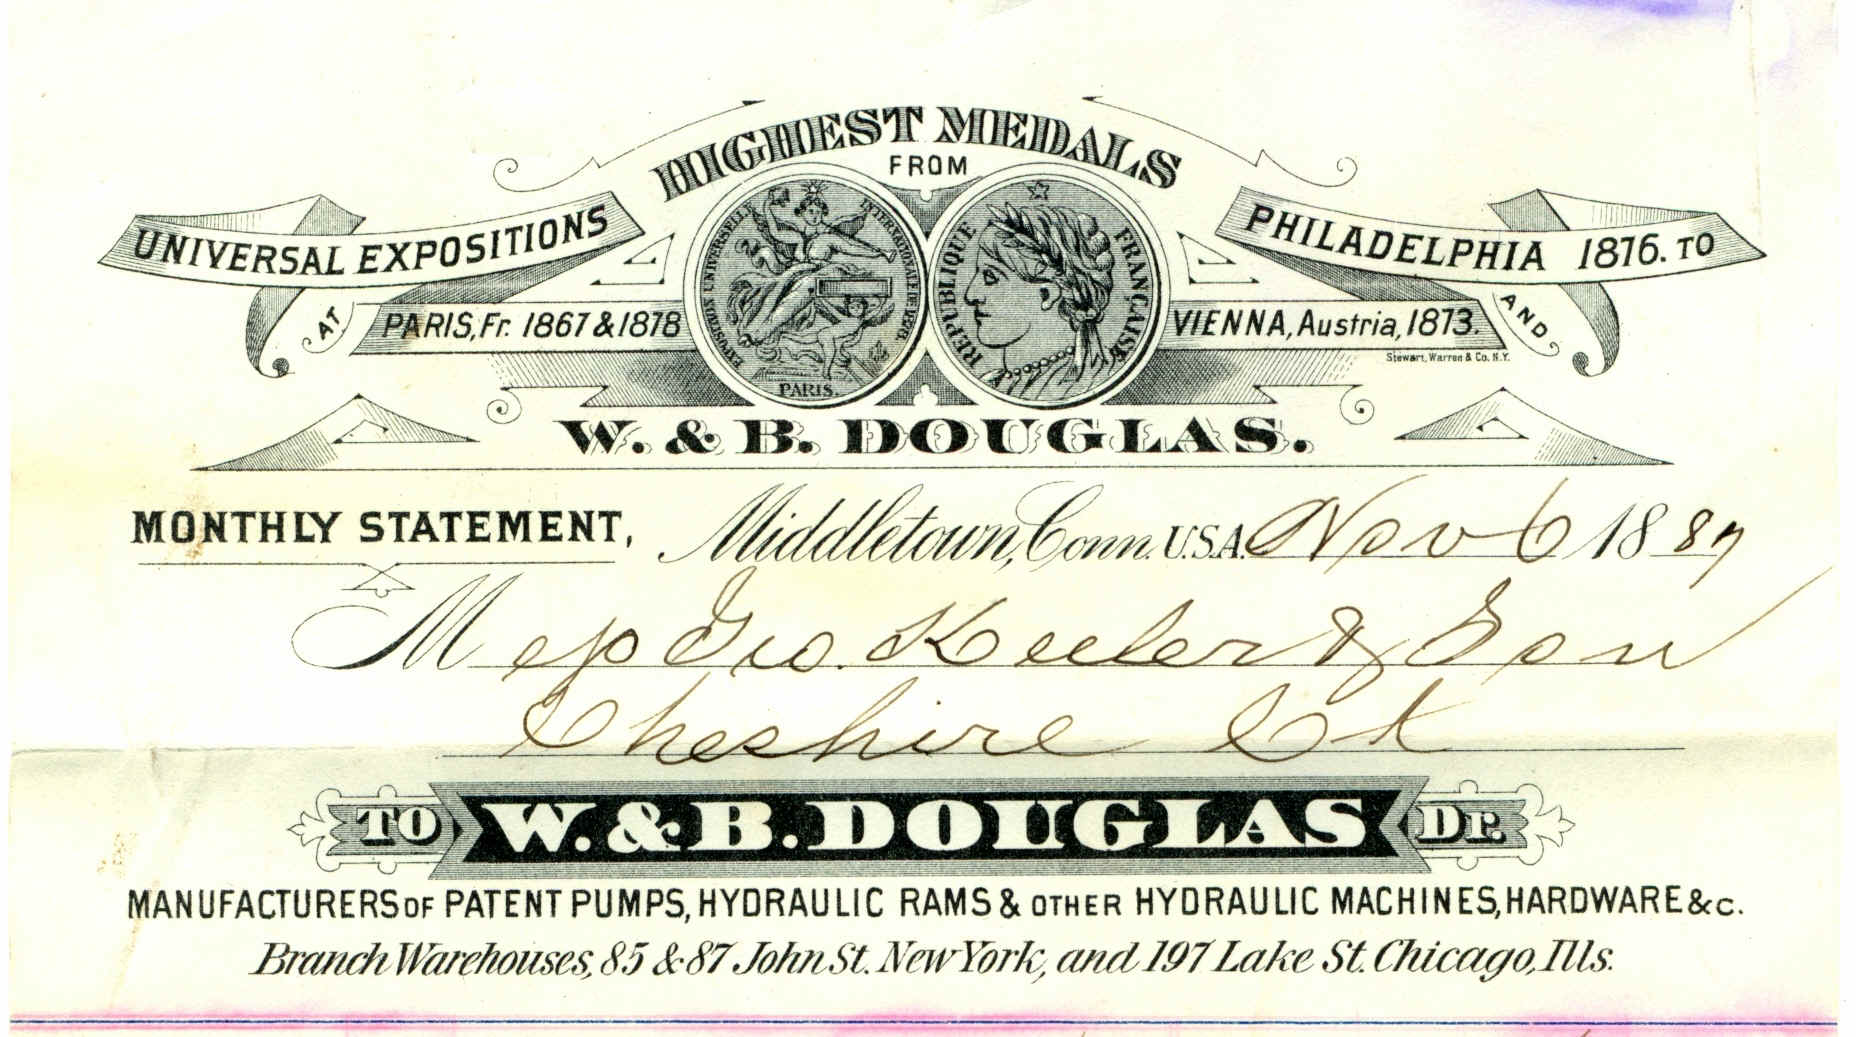 HIGHEST MEDALS
FROM
UNIVERSAL EXPOSITIONS
PHILADELPHIA 1876. TO
AT
PARIS, Fr. 1867 & 1878
VIENNA, Austria, 1873.
AND
EXPOSITION UNIVERSELLE
INTERNATIONALE DE 1878.
PARIS.
REPUBLIQUE FRANÇAISE
Stewart, Warren & Co. N.Y.
W. & B. DOUGLAS.
MONTHLY STATEMENT, Middletown, Conn. U.S.A. Nov 6 1887
Mess Geo. Keeler & Son
Cheshire Ct
TO W. & B. DOUGLAS Dr.
MANUFACTURERS OF PATENT PUMPS, HYDRAULIC RAMS & OTHER HYDRAULIC MACHINES, HARDWARE &c.
Branch Warehouses, 85 & 87 John St. New York, and 197 Lake St. Chicago, Ills.